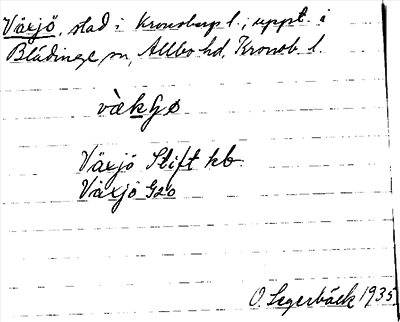 Växjö, stad i Kronobergs l., uppt. i
Blädinge sn, Allbo hd, Kronob. l.
Växjö Stift kb.
Växjö G20
O. Segerbäck 1935.